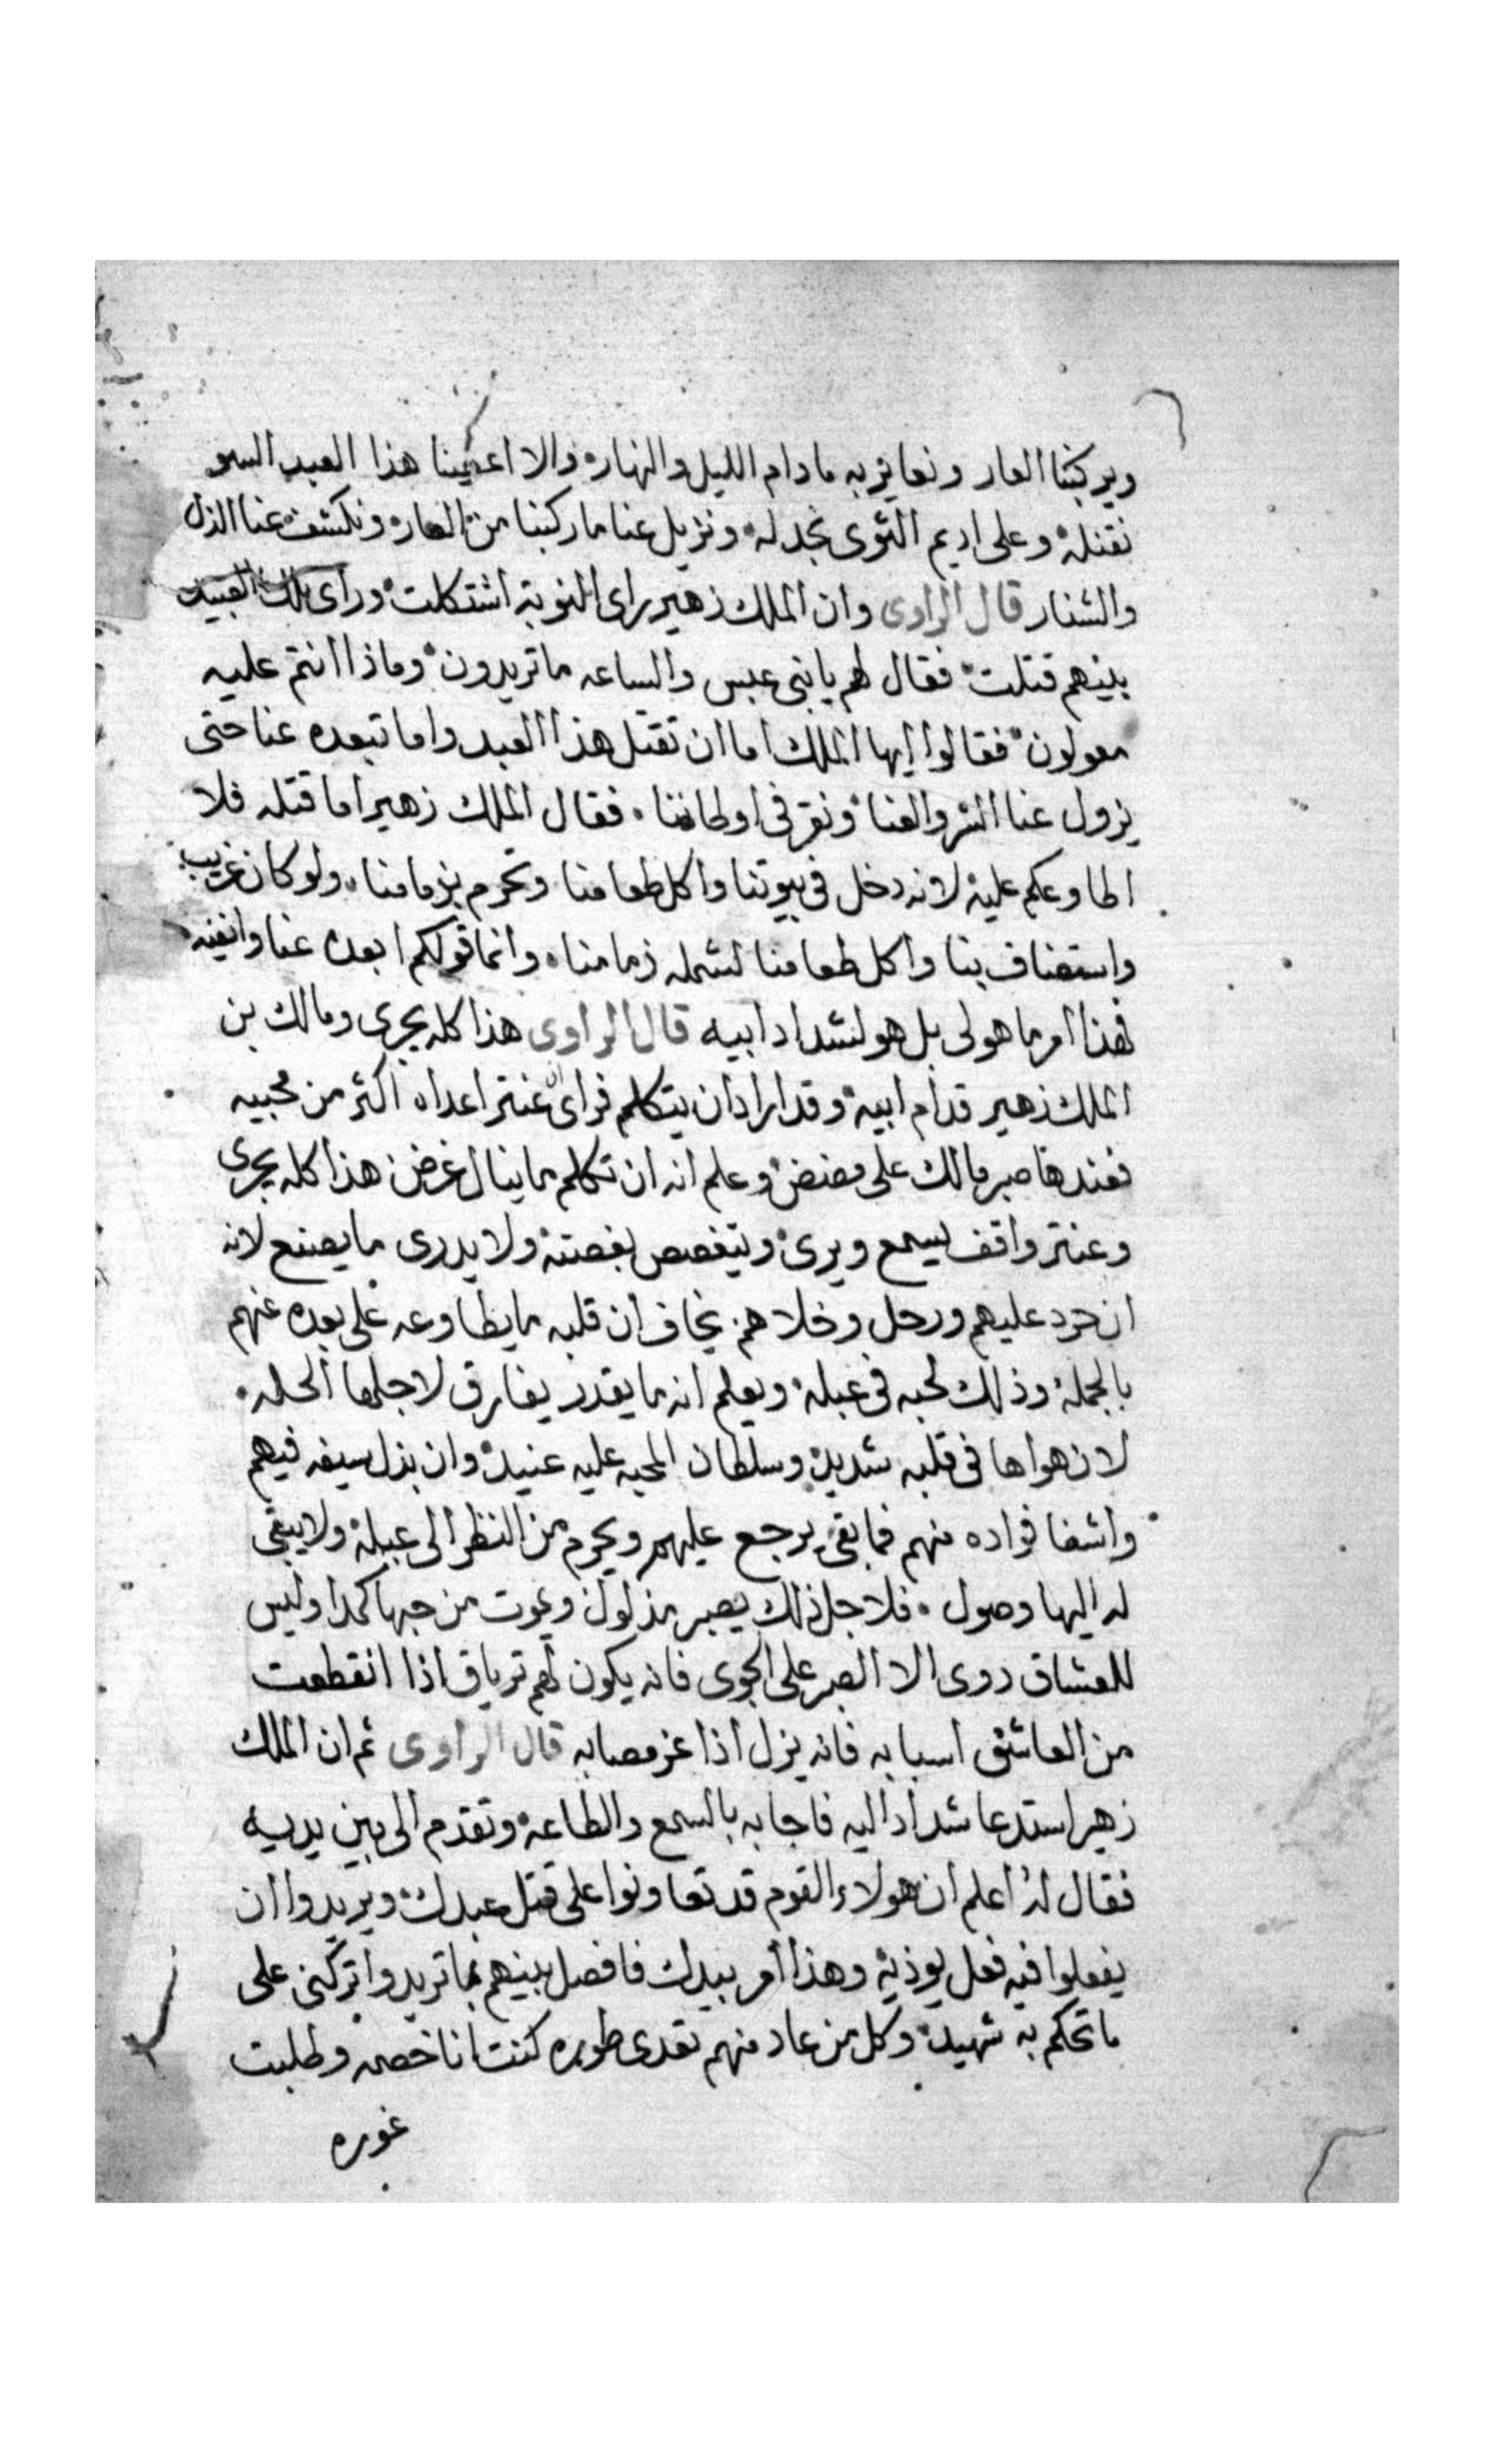 ويركبنا العار ونعاير به مادام الليل والنهار والا اعطينا هذا العبد السو
نقتله وعلى اديم الثوى نجدله ونزيل عنا ماركبنا من العار ونكشف عنا الذل
والشنار قال الراوى وان الملك زهير راى النوبة اشتكلت وراى تلك العبيد
بينهم قتلت فقال لهم يا بنى عبس والساعه ما تريدون وماذا انتم عليه
معولون فقالوا ايها الملك اما ان تقتل هذا العبد واما تبعده عنا حتى
يزول عنا الشر والعنا ونقر فى اوطاننا فقال الملك زهير اما قتله فلا
اطاوعكم عليه لانه دخل فى بيوتنا واكل طعامنا وتحرم بزمامنا ولو كان غريب
واستضاف بنا واكل طعامنا لشمله زمامنا وانما قولكم ابعده عنا وانفيه
فهذا امر ما هو لى بل هو لشداد ابيه قال الراوى هذا كله يجرى ومالك بن
الملك زهير قدام ابيه وقد اراد ان يتكلم فراى ان عنتر اعداه اكثر من محبيه
فعندها صبر مالك على مضض وعلم انه ان تكلم ما ينال غرض هذا كله يجرى
وعنتر واقف يسمع ويرى ويتغصص بغصته ولا يدرى ما يصنع لانه
ان حرد عليهم ورحل وخلاهم يخاف ان قلبه ما يطاوعه على بعده عنهم
بالجمله وذلك لحبه فى عبله ويعلم انه ما يقدر يفارق لاجلها الحله
لان هواها فى قلبه شديد وسلطان المحبه عليه عنيد وان بذل سيفه فيهم
واشفا فواده منهم فما بقى يرجع عليهم ويحرم من النظر الى عبلة ولا يبقى
له اليها وصول فلاجل ذلك يصبر مذلول ويموت من حبها كمدا وليس
للعشاق دوى الا الصبر على الجوى فانه يكون لهم ترياق اذا انقطعت
من العاشق اسبابه فانه يزل اذا عز مصابه قال الراوى ثم ان الملك
زهير استدعا شداد اليه فاجابه بالسمع والطاعة وتقدم الى بين يديه
فقال له اعلم ان هولاء القوم قد تعاونوا على قتل عبدك ويريدوا ان
يفعلوا فيه فعل يوذيه وهذا امر بيدك فافصل بينهم بما تريد واتركنى على
ما تحكم به شهيد وكل من عاد منهم تعدى طوره كنت انا خصمه وطلبت
غوره